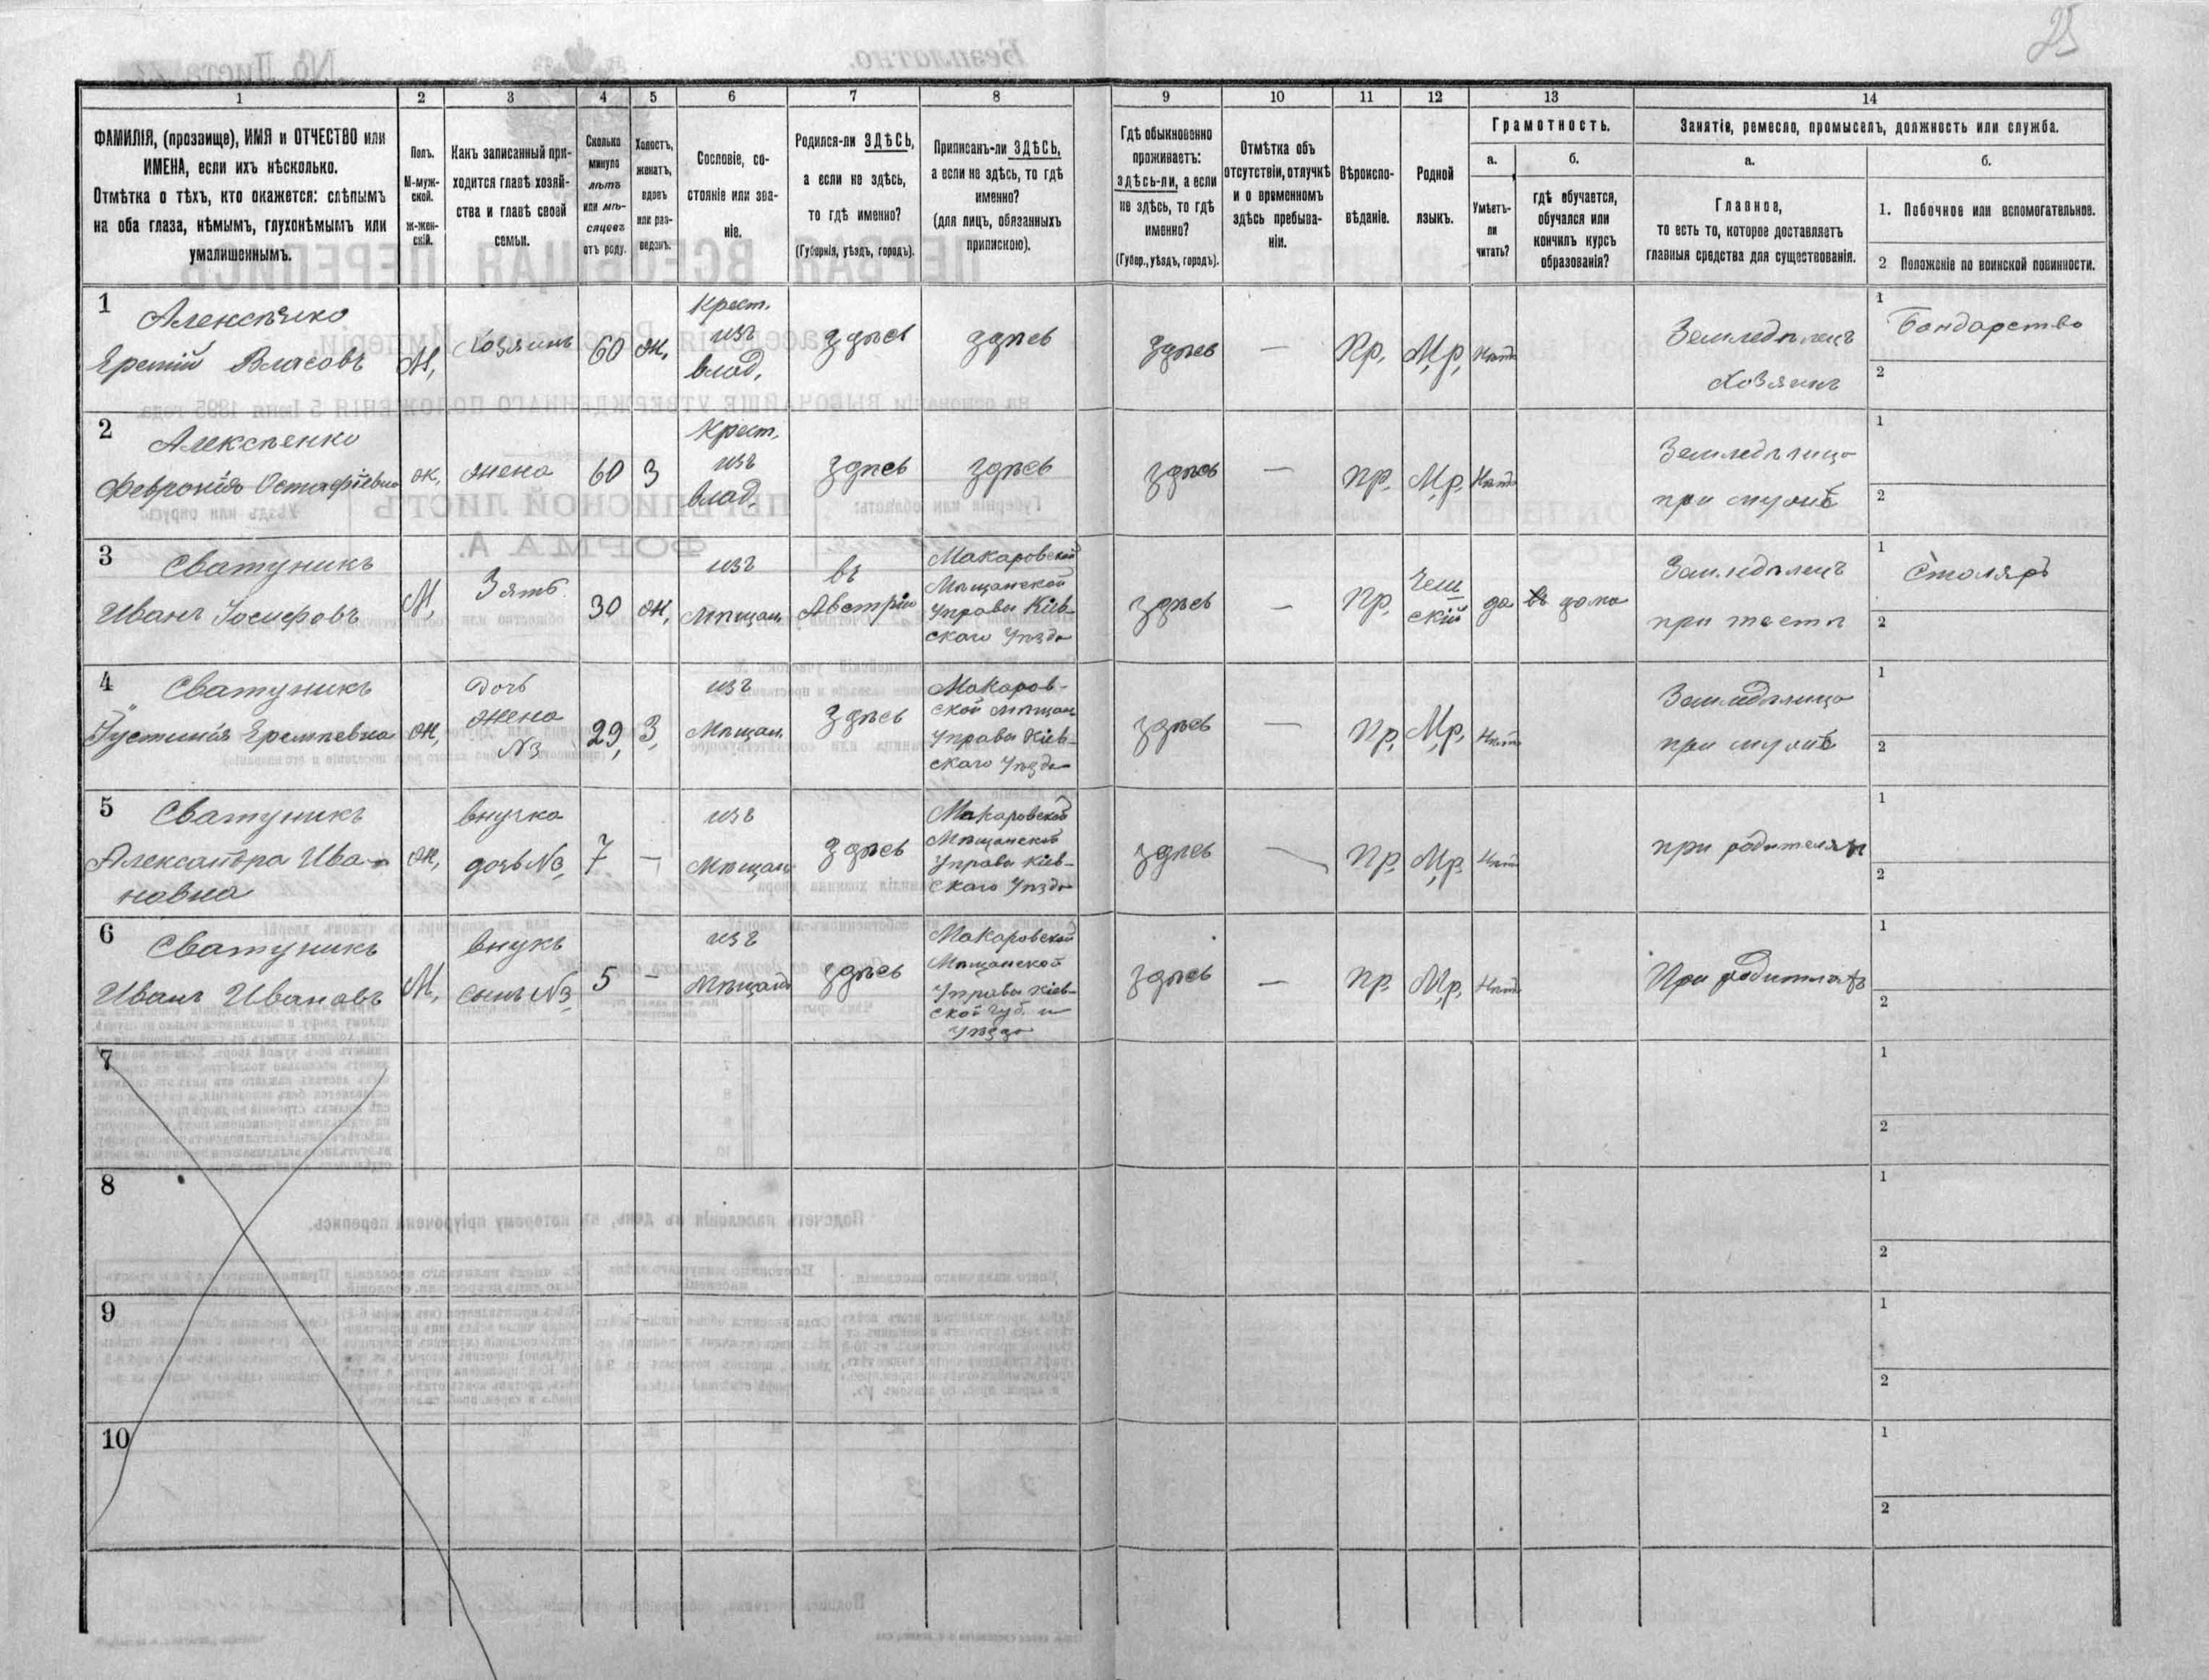 25
1
2
3
4
5
6
7
8
9
10
11
12
13
14
ФАМИЛІЯ, (прозвище), ИМЯ и ОТЧЕСТВО или
ИМЕНА, если ихъ нѣсколько.
Отмѣтка о тѣхъ, кто окажется: слѣпымъ
на оба глаза, нѣмымъ, глухонѣмымъ или
умалишеннымъ.
Полъ.
М-муж-
ской.
ж-жен-
скій.
Какъ записанный при-
ходится главѣ хозяй-
ства и главѣ своей
семьи.
Сколько
минуло
лѣтъ
или мѣ-
сяцевъ
отъ роду.
Холостъ,
женатъ,
вдовъ
или раз-
веденъ.
Сословіе, со-
стояніе или зва-
ніе.
Родился-ли ЗДѢСЬ,
а если не здѣсь,
то гдѣ именно?
(Губернія, уѣздъ, городъ).
Приписанъ-ли ЗДѢСЬ,
а если не здѣсь, то гдѣ
именно?
(для лицъ, обязанныхъ
припискою).
Гдѣ обыкновенно
проживаетъ:
здѣсь-ли, а если
не здѣсь, то гдѣ
именно?
(Губер., уѣздъ, городъ).
Отмѣтка объ
отсутствіи, отлучкѣ
и о временномъ
здѣсь пребыва-
ніи.
Вѣроиспо-
вѣданіе.
Родной
языкъ.
Грамотность.
а.
Умѣетъ-
ли
читать?
б.
гдѣ обучается,
обучался или
кончилъ курсъ
образованія?
Занятіе, ремесло, промыселъ, должность или служба.
а.
Главное,
то есть то, которое доставляетъ
главныя средства для существованія.
б.
1. Побочное или вспомогательное.
2 Положеніе по воинской повинности.
1
Алексѣнко
Еремій Власовъ
М,
Хозяинъ
60
ж,
Крест.
изъ
влад,
здѣсь
здѣсь
здѣсь
—
Пр,
М,р,
Нѣтъ
Земледѣлецъ
Хозяинъ
1
Бондарство
2
2
Алексѣенко
Февронія Остафіевна
ж,
жена
60
З
Крест,
изъ
влад,
здѣсь
здѣсь
здѣсь
—
Пр.
М,р,
Нѣтъ
Земледѣлица
при мужѣ
1
2
3
Сватуникъ
Иванъ Іосифовъ
М,
Зять
30
ж,
изъ
Мѣщан
въ
Австріи
Макаровской
Мѣщанской
Управы Кіев-
скаго Уѣзда
здѣсь
—
Пр.
Чеш
скій
да
въ дома
Земледѣлецъ
при тестѣ
1
Столяръ
2
4
Сватуникъ
Іустинія Еремѣевна
ж,
дочь
жена
№3
29,
З,
изъ
Мѣщан
здѣсь
Макаров-
ской мѣщан
Управы Кіев-
скаго Уѣзда
здѣсь
—
Пр,
М,р,
Нѣтъ
Земледѣлица
при мужѣ
1
2
5
Сватуникъ
Александра Ива-
новна
ж,
внучка
дочь №3,
7
—
изъ
Мѣщан
здѣсь
Макаровской
Мѣщанской
Управы Кіев-
скаго Уѣзда
здѣсь
—
Пр,
М,р.
Нѣтъ
при родителяхъ
1
2
6
Сватуникъ
Иванъ Ивановъ
М,
внукъ
сынъ №3
5
—
изъ
Мѣщанъ
здѣсь
Макаровской
Мѣщанской
Управы Кіев-
ской Губ. и
Уѣзда
здѣсь
—
Пр.
М,р,
Нѣтъ
При родителяхъ
1
2
7
1
2
8
1
2
9
1
2
10
1
2